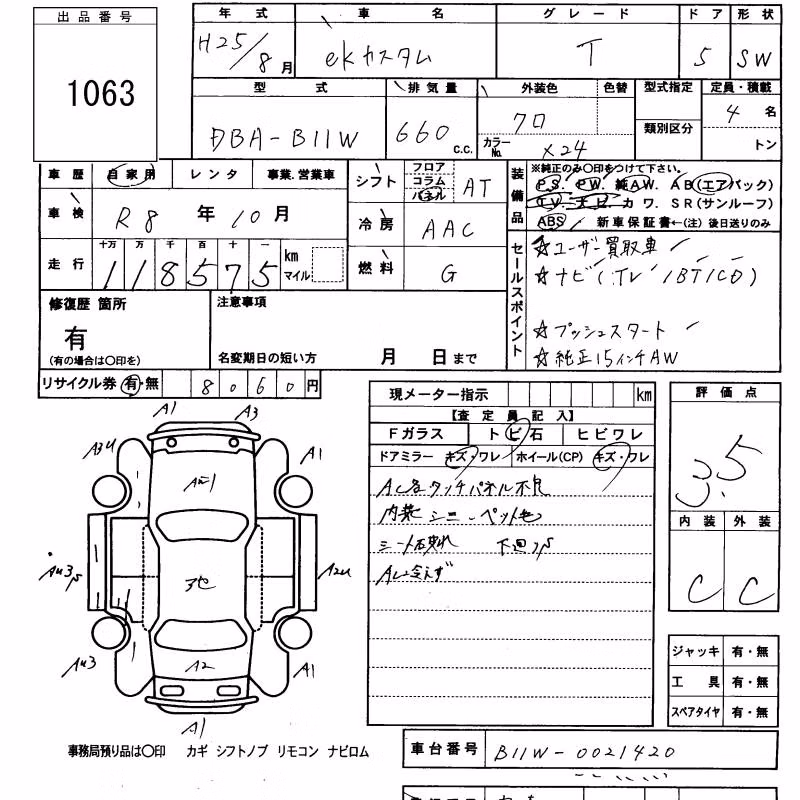 出品番号
1063
年式 車名 グレード ドア 形状
H25/8月 ekカスタム T 5 SW
型式 排気量 外装色 色替 型式指定 定員・積載
DBA-B11W 660 c.c. クロ 類別区分 4名
カラーNo. X24 トン
車歴 自家用 レンタ 事業.営業車
車検 R8年10月
走行 十万 万 千 百 十 一
118575 km マイル
シフト フロア コラム パネル AT
冷房 AAC
燃料 G
装備品
※純正のみ〇印をつけて下さい。
PS. PW. 純AW. AB(エアバック)
TV. ナビ カワ. SR(サンルーフ)
ABS 新車保証書←(注) 後日送りのみ
セールスポイント
☆ユーザー買取車
☆ナビ(TV/BT/CD)
☆プッシュスタート
☆純正15インチAW
修復歴 箇所
有
(有の場合は〇印を)
注意事項
名変期日の短い方 月 日まで
リサイクル券 有・無 8060円
現メーター指示 km
【査定員記入】
Fガラス トビ石 ヒビワレ
ドアミラー キズ・ワレ ホイール(CP) キズ・ワレ
AC各タッチパネル不良
内装シミ・ペット毛
シート
下回りS
AC冷えず
評価点
3.5
内装 外装
C C
ジャッキ 有・無
工具 有・無
スペアタイヤ 有・無
A1 A3
A3U A1
AU3S A2U
AU3 A2 A1
A1
事務局預り品は〇印 カギ シフトノブ リモコン ナビロム
車台番号 B11W-0021420